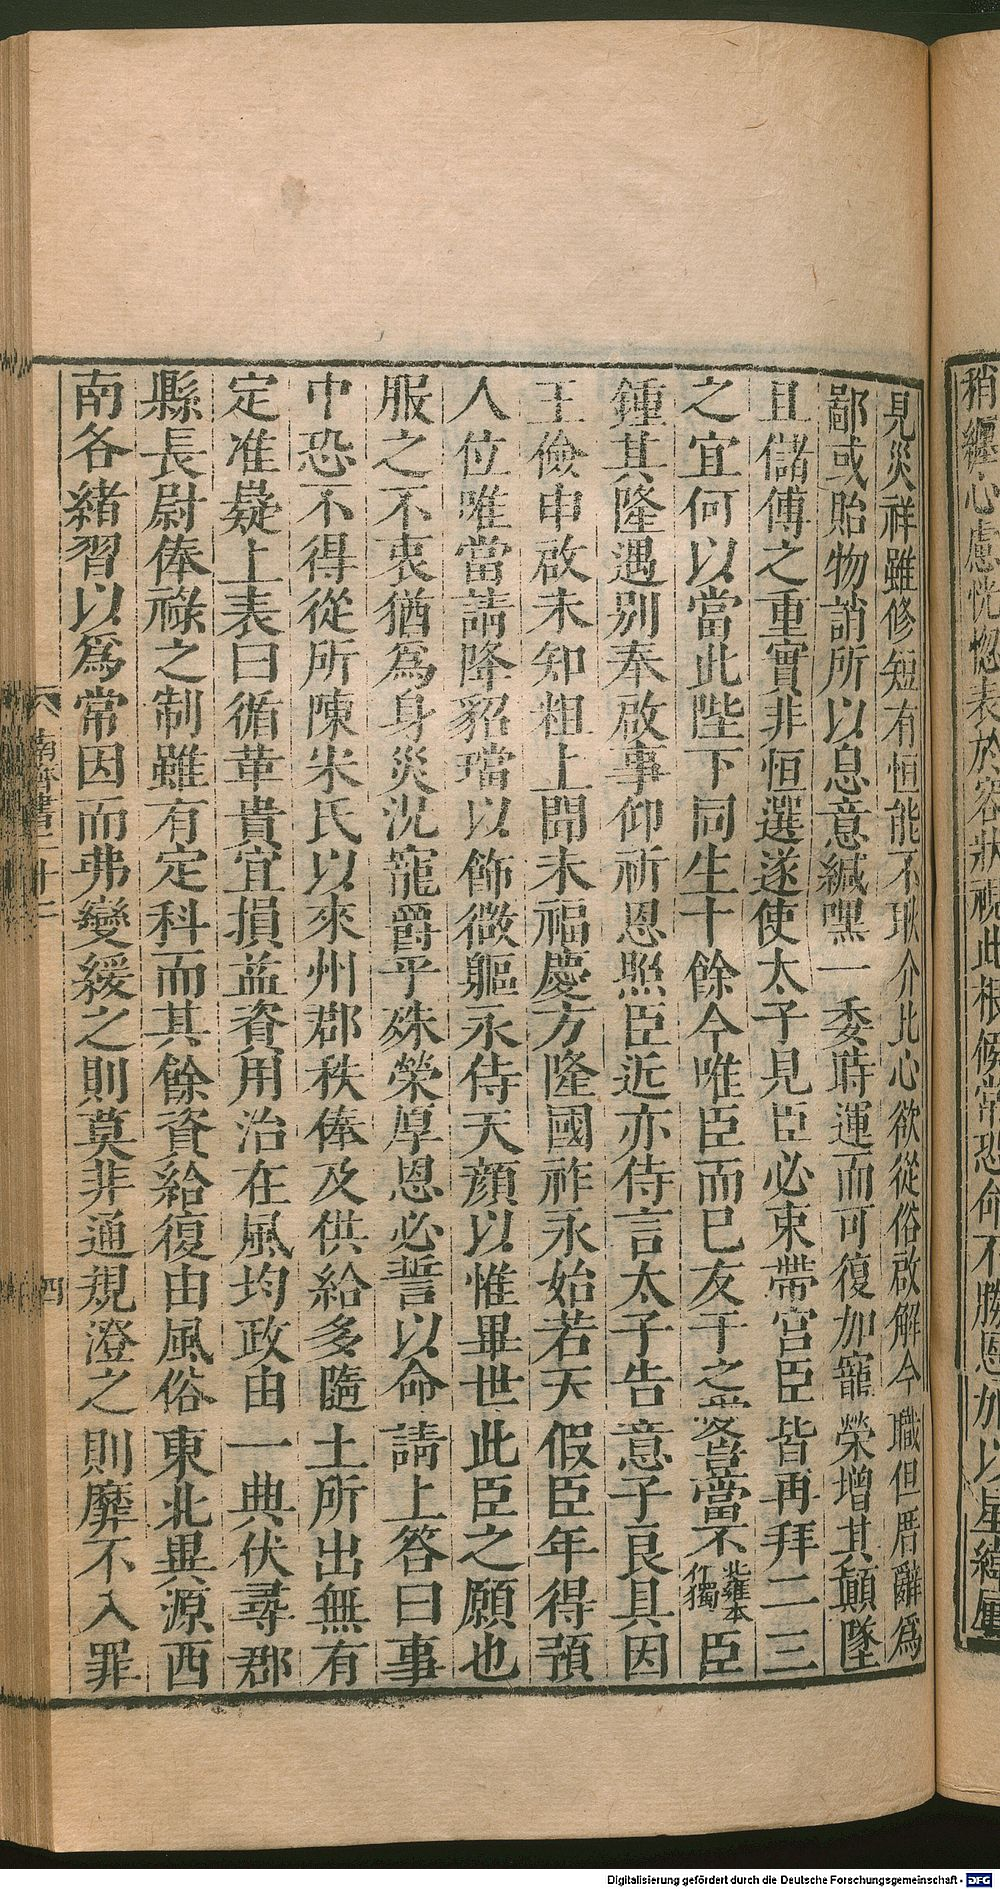 稍纏心慮恍惚表於容狀視此根候常恐命不勝恩加以星緯屢
見災祥雖修短有恒能不耿介比心欲從俗啟解今職但厝辭爲
鄙或貽物誚所以息意緘嘿一委時運而可復加寵榮增其顛墜
且儲傅之重實非恒選遂使太子見臣必束帶宮臣皆再拜二三
之宜何以當此陛下同生十餘今唯臣而已友于之愛豈當不北雍本作獨臣
鍾其隆遇别奉啟事仰祈恩照臣近亦侍言太子告意子良具因
王儉申啟未知粗上聞未福慶方隆國祚永始若天假臣年得預
人位唯當請降貂璫以飾微軀永侍天顏以惟畢世此臣之願也
服之不衷猶爲身災況寵爵乎殊榮厚恩必誓以命請上答曰事
中恐不得從所陳宋氏以來州郡秩俸及供給多隨土所出無有
定准嶷上表曰循革貴宜損益資用治在風均政由一典伏尋郡
縣長尉俸祿之制雖有定科而其餘資給復由風俗東北異源西
南各緒習以爲常因而弗變緩之則莫非通規澄之則靡不入罪
南齊書二十二
四
Digitalisierung gefördert durch die Deutsche Forschungsgemeinschaft - DFG